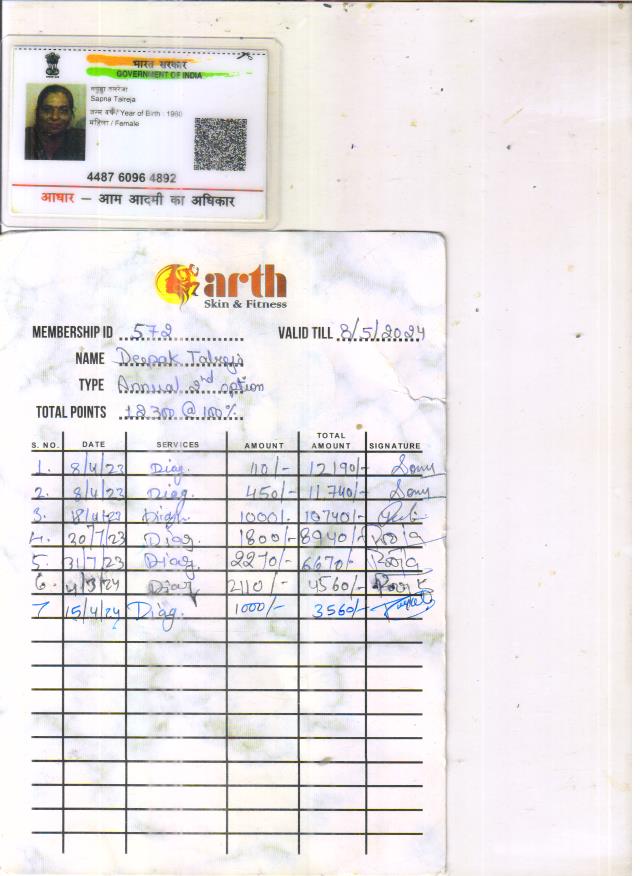 भारत सरकार
GOVERNMENT OF INDIA
Sapna Talreja
जन्म वर्ष / Year of Birth : 1960
महिला / Female
4487 6096 4892
आधार – आम आदमी का अधिकार
arth
Skin & Fitness
MEMBERSHIP ID 572 VALID TILL 8/5/2024
NAME Deepak Talreja
TYPE Annual 2nd option
TOTAL POINTS 12300 @ 100%
S. NO. DATE SERVICES AMOUNT TOTAL AMOUNT SIGNATURE
1. 8/4/23 Diag. 110/- 12190/- Sonu
2. 8/4/23 Diag. 450/- 11740/- Sonu
3. 18/4/23 Diag. 1000/- 10740/-
4. 30/7/23 Diag. 1800/- 8940/-
5. 31/7/23 Diag. 2270/- 6670/-
6. 4/3/24 Diag 2110/- 4560/-
7 15/4/24 Diag. 1000/- 3560/-